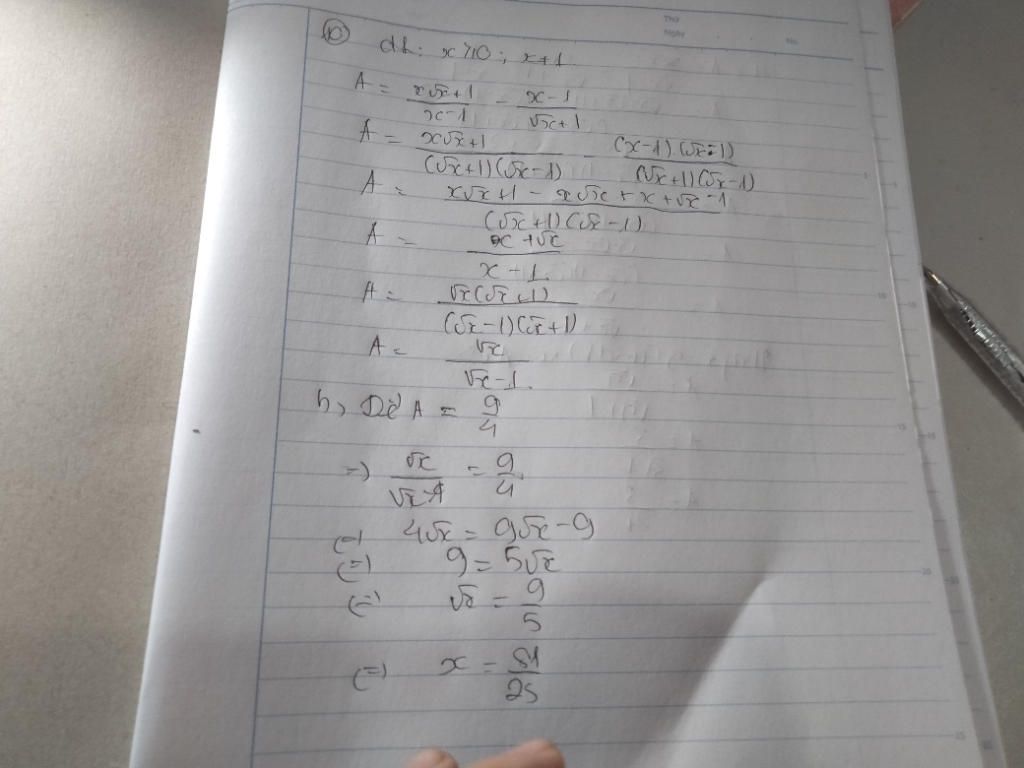 Thứ
Ngày No.
10 đk: x≥0; x≠1
A = (x√x+1)/(x-1) - (x-1)/(√x+1)
A = (x√x+1)/((√x+1)(√x-1)) - ((x-1).(√x-1))/((√x+1)(√x-1))
A = (x√x+1 - x√x + x+√x-1)/((√x+1)(√x-1))
A = (x+√x)/(x-1)
A = (√x(√x+1))/((√x-1)(√x+1))
A = √x/(√x-1)
b, Để A = 9/4
=> √x/(√x-1) = 9/4
(=) 4√x = 9√x-9
(=) 9 = 5√x
(=) √x = 9/5
(=) x = 81/25